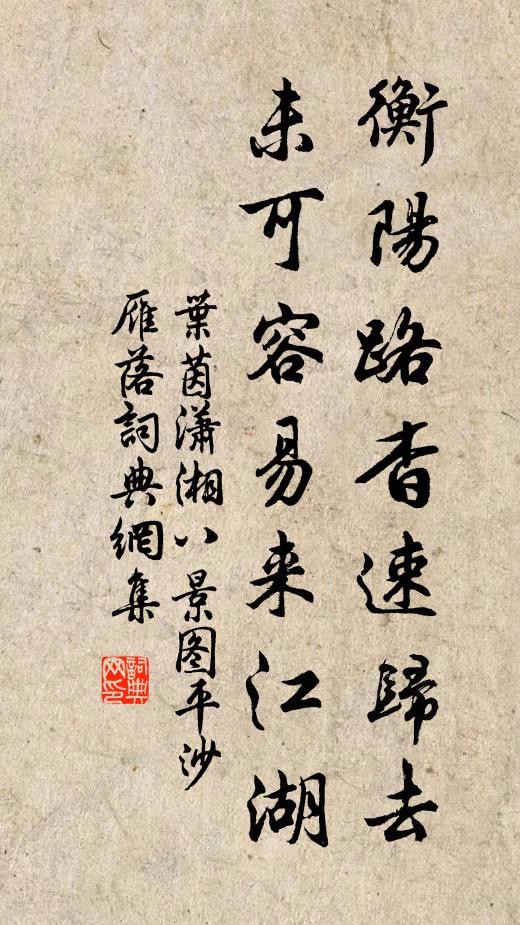 衡陽路杳速歸去
未可容易来江湖
葉茵瀟湘八景图平沙
雁落詞典網集
詞典网印